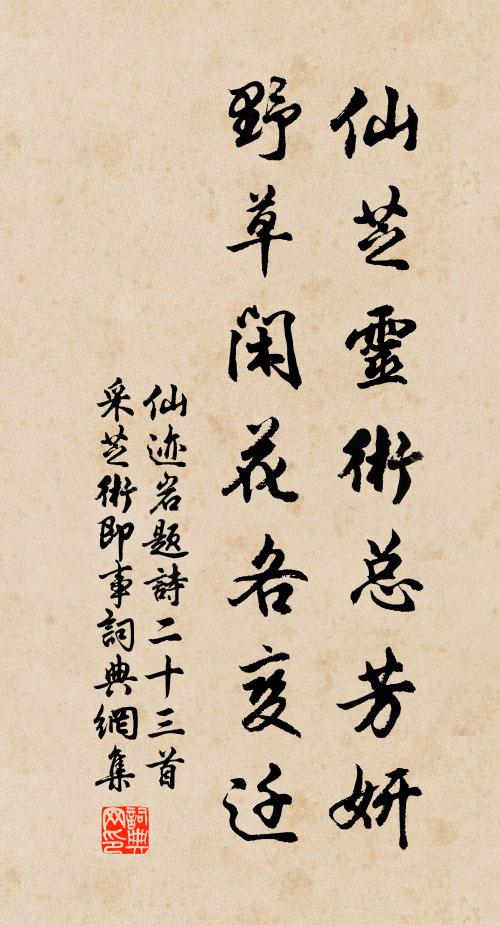 仙芝靈術总芳妍
野草闲花各变迁
仙迹岩题詩二十三首
采芝術即事詞典網集
詞典网印